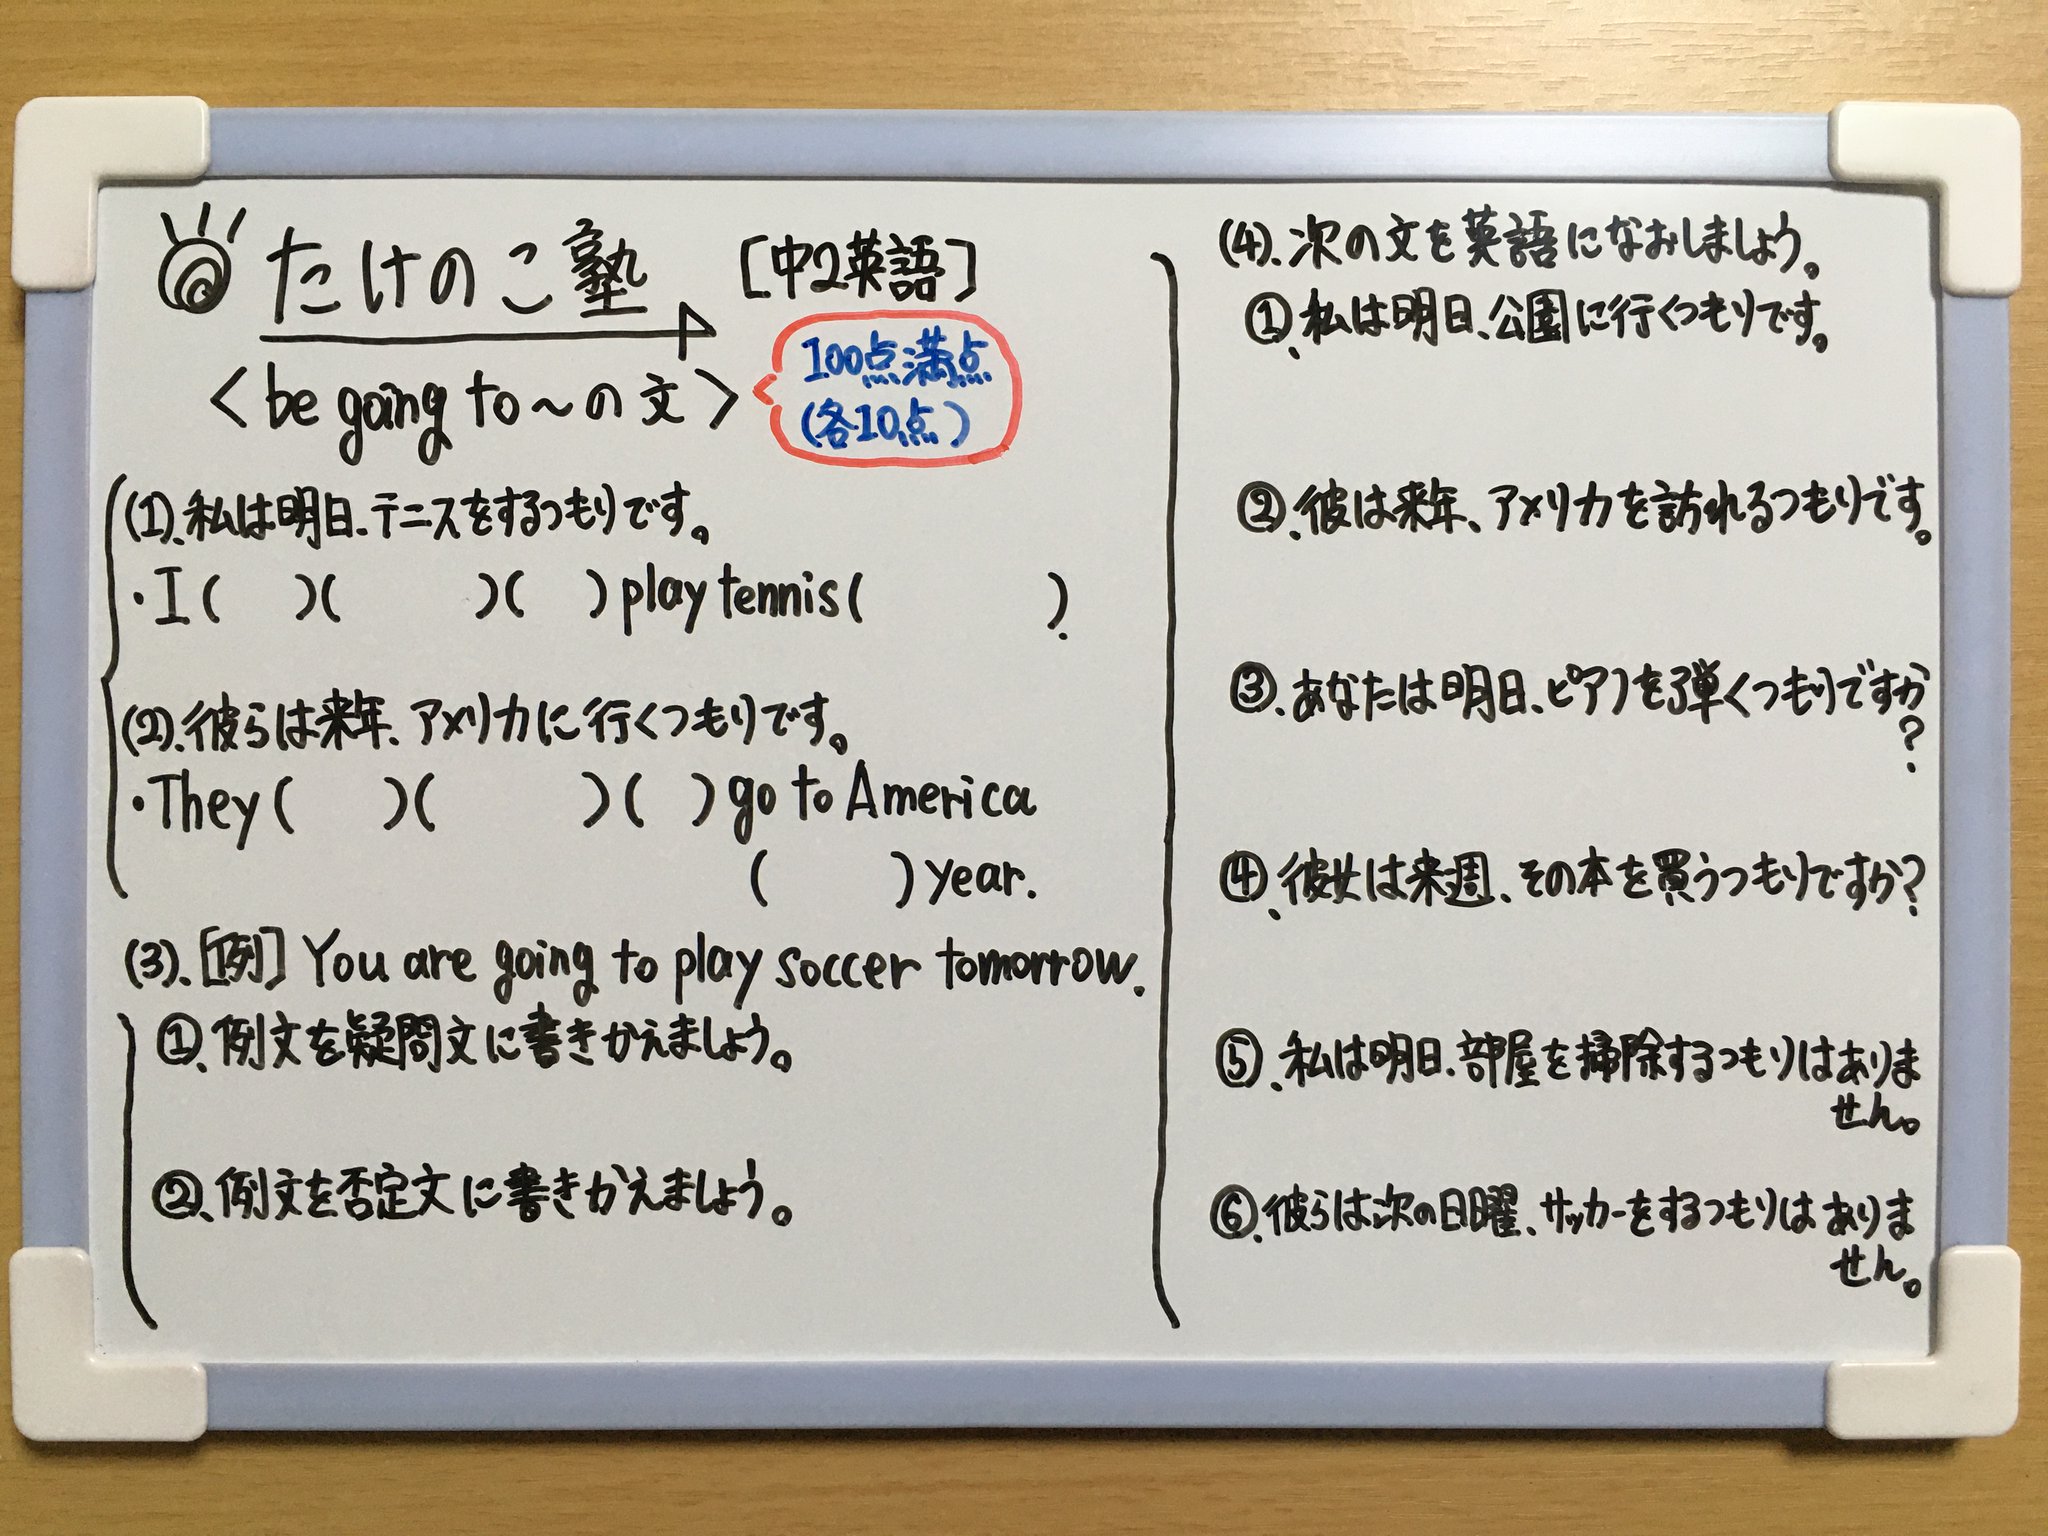 たけのこ塾 [中2英語]
<be going to～の文>
100点満点
(各10点)
(1)、私は明日、テニスをするつもりです。
・I (    )(    )(    ) play tennis (    ).
(2)、彼らは来年、アメリカに行くつもりです。
・They (    )(    )(    ) go to America
(    ) year.
(3)、[例] You are going to play soccer tomorrow.
①、例文を疑問文に書きかえましょう。
②、例文を否定文に書きかえましょう。
(4)、次の文を英語になおしましょう。
①、私は明日、公園に行くつもりです。
②、彼は来年、アメリカを訪れるつもりです。
③、あなたは明日、ピアノを弾くつもりですか
?
④、彼女は来週、その本を買うつもりですか?
⑤、私は明日、部屋を掃除するつもりはありま
せん。
⑥、彼らは次の日曜、サッカーをするつもりはありま
せん。